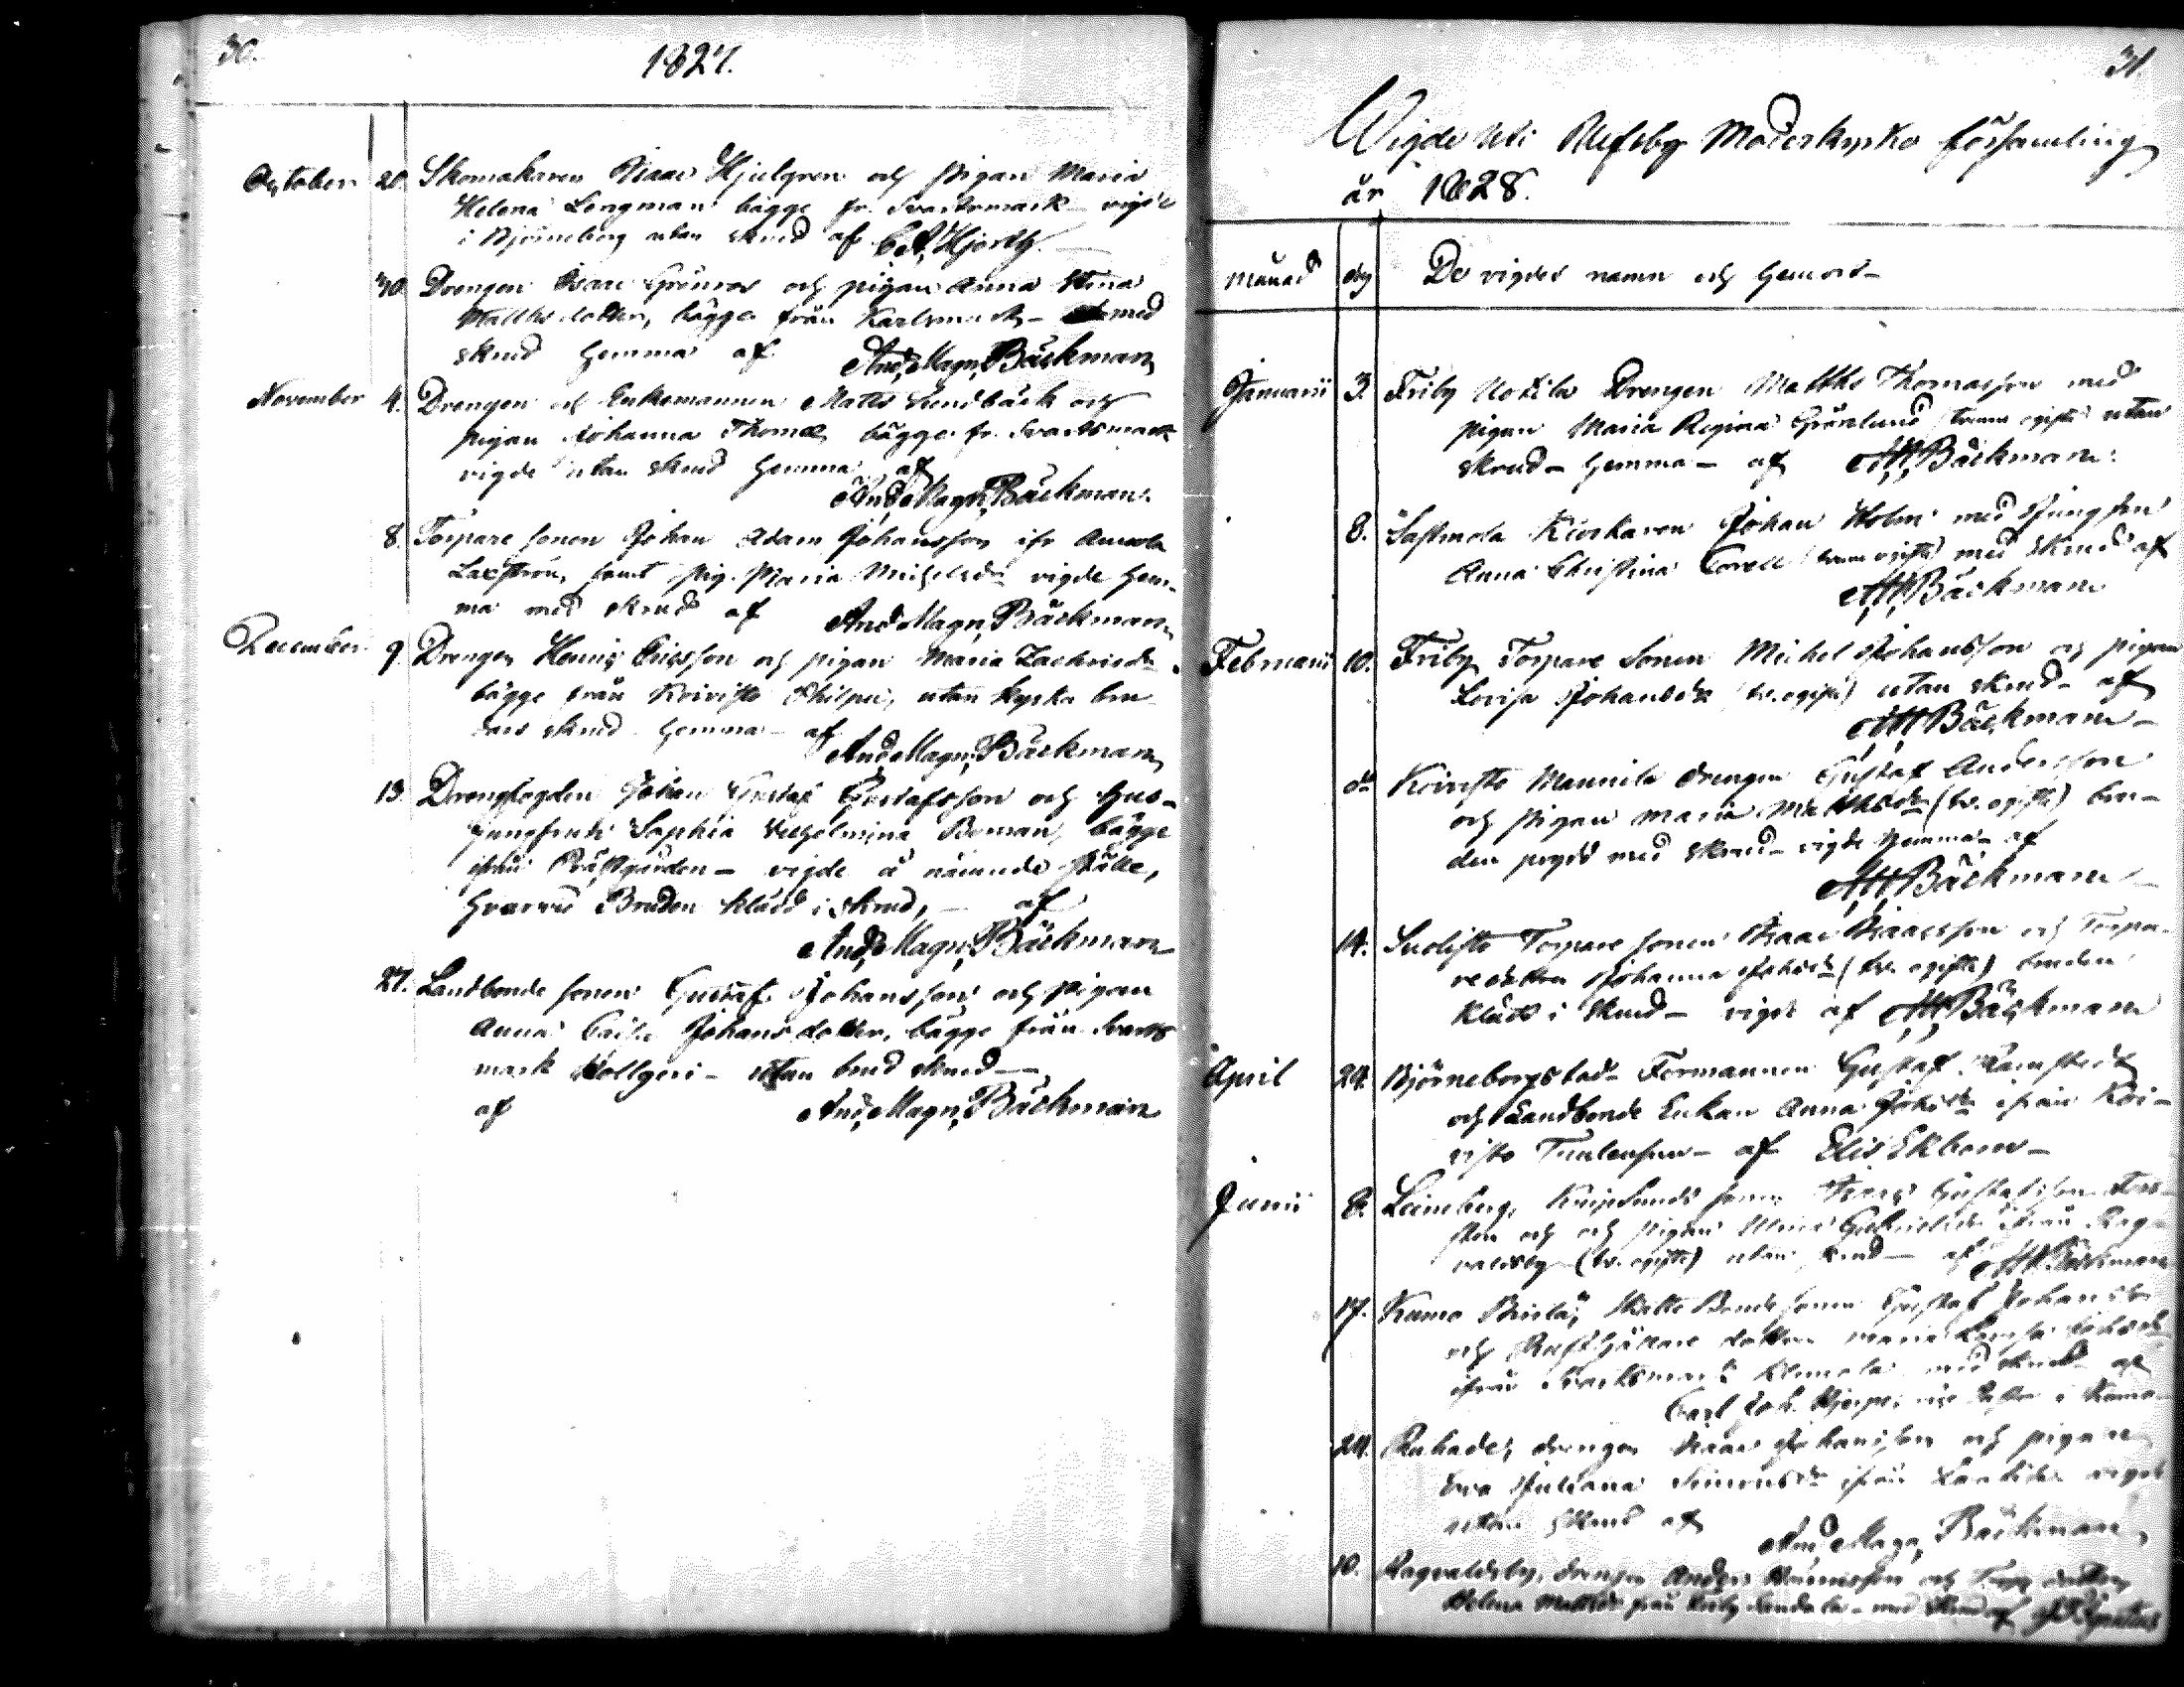 30.
1827.
October 28. Skomakaren Isaac Hjulgren och pigan Maria
Helena Lengman bägge fr. Svartsmark vigde
i Björneborg utan skrud af C.A. Hjorth.
30. Drengen Isaac Grönroos och pigan Anna Stina
Matthsdotter, bägge från Karlsmark - med
skrud hemma af And. Magn. Bäckman
November 4. Drengen och Enkemannen Matts Sundbäck och
pigan Johanna Thomæ bägge fr. Svartsmark
vigde utan skrud hemma af
And. Magn. Bäckman.
8. Torpare sonen Johan Adam Johansson ifr
Laxström, samt pig. Maria Michelsdr vigde hem-
ma med skrud af And. Magn. Bäckman
December 9. Drengen Henric Ericsson och pigan Maria Zachrisdr
bägge från Koivisto Philpus, utan kyrko bru-
dars skrud hemma - af
And. Magn. Bäckman
13. Drengfogden Johan Gustaf Gustafsson och Hus-
jungfrun Sophia Vilhelmina Boman, bägge
ifrån Prästgården - vigde å nämnde ställe,
hvarvid Bruden klädd i skrud, - af
And. Magn. Bäckman
27. Landbonde sonen Gustaf Johansson och pigan
Anna Caisa Johansdotter, bägge från Svarts
mark - utan brud skrud -
af And. Magn. Bäckman
31.
Wigde uti Ulfsby Moderkyrko församling
år 1828.
Månad dag De vigdes namn och hemvist -
Januarii 3. Friby Uotila Drengen Matths Thomasson med
pigan Maria Regina Grönlund (tvenne ogifte) utan
skrud - hemma - af AM. Bäckman.
8. Johan Holm med Jungfrun
Anna Christina (tvenne ogifte) med skrud af
AM. Bäckman
Februarii 10. Friby Torpare Sonen Michel Johansson och pigan
Lovisa Johansdr (tv. ogifte) utan skrud - af
AM. Bäckman -
do Koivisto Mannila drengen Gustaf Andersson
och pigan Maria Matthsdr (tv. ogifte) bru-
den prydd med skrud - vigde hemma - af
AM. Bäckman -
14. Suolisto Torpare sonen Isaac Isaacsson och Torpa-
re dottren Johanna Johsdr (tv. ogifte) bruden
klädd i skrud - vigde af AM. Bäckman
April 24. Björneborgs stads Formannen Gustaf
och Landbonde Enkan Anna Johsdr ifrån Koi-
visto - af Elis Ekbom -
Junii 8. Leineberg, sonen Gustafsson
och pigan Gabrielsdr från Rag-
valdsby (tv. ogifte) utan skrud - af AM. Bäckman
17. Kumo Skatte Bonde sonen Gustaf Johansson
och dottren Maria Lovisa Johsdr
ifrån Svartsmark med skrud af
Carl Joh. i Kumo
24. drengen Isaac Johansson och pigan
Eva Juliana Simonsdr ifrån vigde
utan skrud af And. Magn. Bäckman
10. Ragvaldsby, drengen Anders och dottren
Helena Matthsdr från Friby - med skrud af